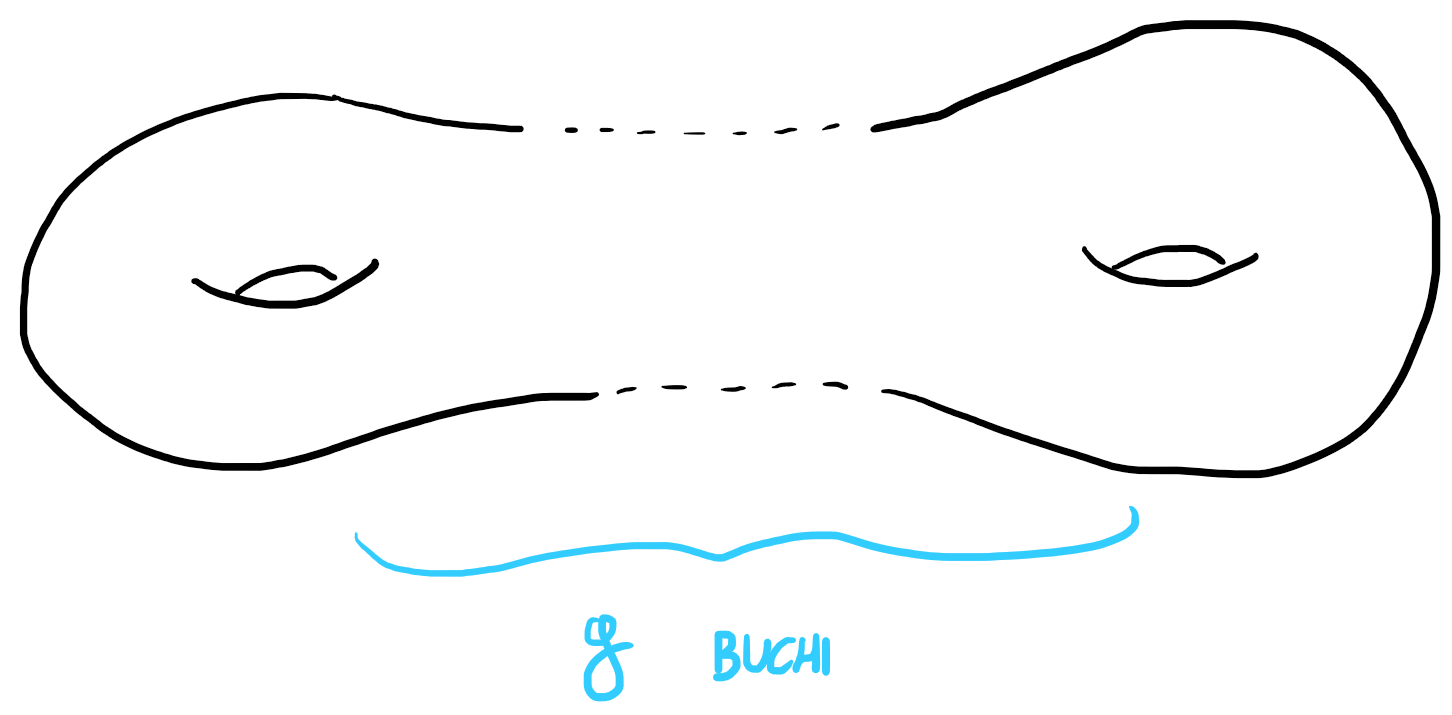 g BUCHI